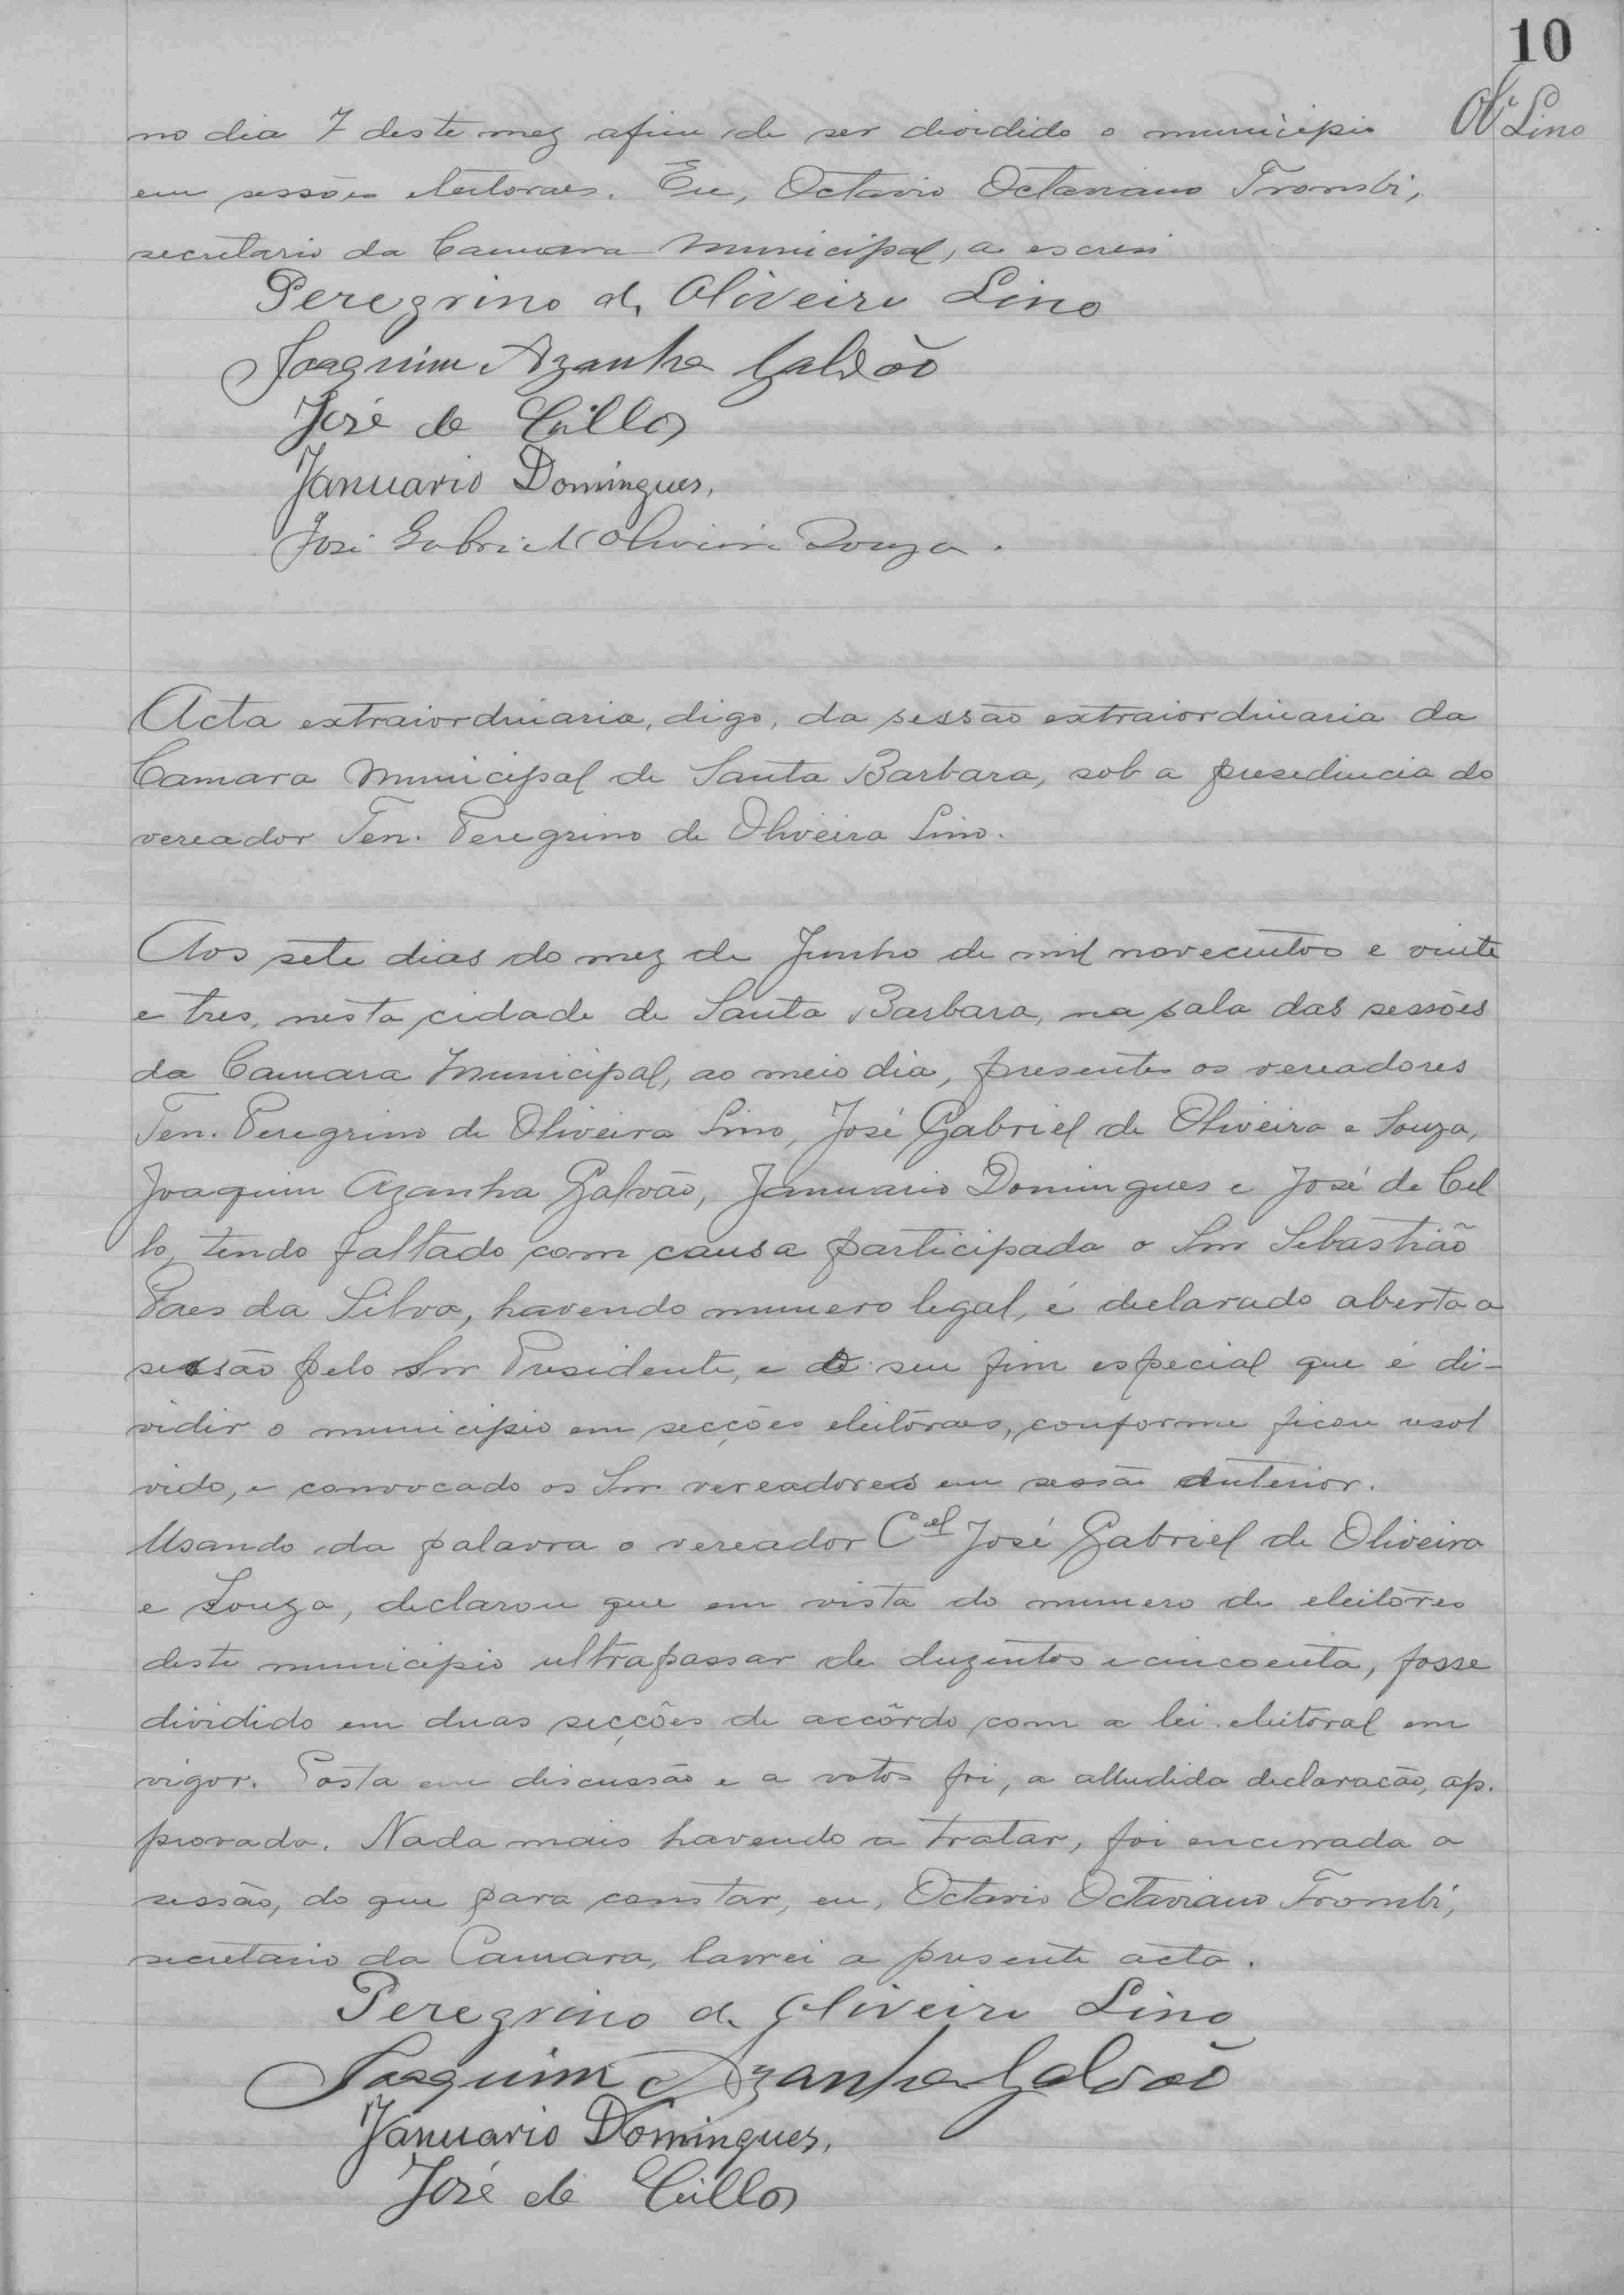 10
Olª Lino
no dia 7 deste mez afim de ser dividido o municipio
em sessões eleitoraes. Eu, Octavio Octaviano Trombi,
secretario da Camara Municipal, a escrevi
Peregrino de Oliveira Lino
Joaquim Azanha Galvão
José de Cillo
Januario Domingues,
José Gabriel Oliveira Souza.
Acta extraiordinaria, digo, da sessão extraiordinaria da
Camara Municipal de Santa Barbara, sob a presedincia do
vereador Ten. Peregrino de Oliveira Lino.
Aos sete dias do mez de Junho de mil novecentos e vinte
e tres, nesta cidade de Santa Barbara, na sala das sessões
da Camara Municipal, ao meio dia, presentes os vereadores
Ten. Peregrino de Oliveira Lino, José Gabriel de Oliveira e Souza,
Joaquim Azanha Galvão, Januario Domingues e José de Cil
lo, tendo faltado com causa participada o Snr Sebastião
Paes da Silva, havendo numero legal, é declarado aberta a
sessão pelo Snr Presidente, e de seu fim especial que é di-
vidir o municipio em secções eleitoraes, conforme ficou resol
vido, e convocado os Snr vereadores em sessão anterior.
Usando da palavra o vereador Cel José Gabriel de Oliveira
e Souza, declarou que em vista do numero de eleitores
deste municipio ultrapassar de duzentos e cincoenta, fosse
dividido em duas secções de accôrdo com a lei eleitoral em
vigor. Posta em discussão e a votos foi, a alludida declaração, ap.
provada. Nada mais havendo a tratar, foi encerrada a
sessão, do que para constar, eu, Octavio Octaviano Trombi,
secretario da Camara, lavrei a presente acta.
Peregrino de Oliveira Lino
Joaquim Azanha Galvão
Januario Domingues,
José de Cillo